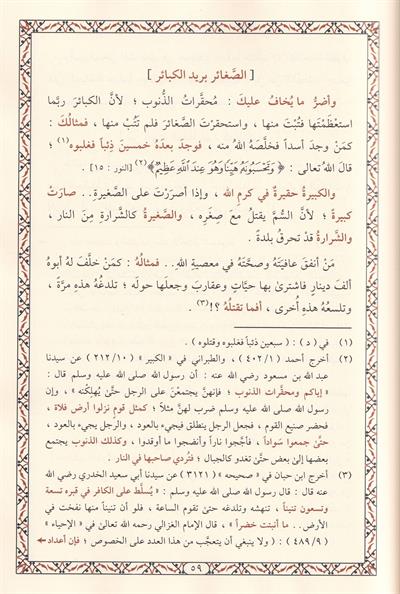 [ الصَّغائر بريد الكبائر ]
وأضرُّ ما يُخافُ عليكَ : مُحقَّراتُ الذُّنوبِ ؛ لأنَّ الكبائرَ ربَّما
استعْظَمْتَها فتُبْتَ منها ، واستحقرْتَ الصَّغائرَ فلم تَتُبْ منها ، فمثالُكَ :
كمَنْ وجدَ أسداً فخلَّصَهُ اللهُ منه ، فوجدَ بعدَهُ خمسينَ ذئباً فغلبوهُ(١) ؛
قالَ اللهُ تعالى : ﴿ وَتَحْسَبُونَهُ هَيِّنًا وَهُوَ عِندَ اللَّهِ عَظِيمٌ ﴾(٢) [النور : ١٥] .
والكبيرةُ حقيرةٌ في كرمِ الله ، وإذا أصرَرْتَ على الصَّغيرةِ . . صارَتْ
كبيرةً ؛ لأنَّ السُّمَّ يقتلُ معَ صِغَرِه ، والصَّغيرةُ كالشَّرارةِ مِنَ النار ،
والشَّرارةُ قدْ تحرقُ بلدةً .
مَنْ أنفقَ عافيَتَهُ وصحَّتَهُ في معصيةِ اللهِ . . فمثالُهُ : كمَنْ خلَّفَ لهُ أبوهُ
ألفَ دينارٍ فاشترىٰ بها حيَّاتٍ وعقاربَ وجعلَها حولَه ؛ تلدغُهُ هذهِ مرَّةً ،
وتلسعُهُ هذهِ أُخرى ، أفما تقتلُهُ ؟!(٣) .
(١) في ( د ) : ( سبعين ذئباً فغلبوه وقتلوه ) .
(٢) أخرج أحمد ( ٤٠٢/١ ) ، والطبراني في « الكبير » ( ٢١٢/١٠ ) عن سيدنا
عبد الله بن مسعود رضي الله عنه : أن رسول الله صلى الله عليه وسلم قال :
« إياكم ومحقَّرات الذنوب ؛ فإنهنَّ يجتمعْنَ على الرجل حتَّىٰ يُهلِكْنَه » ، وإن
رسول الله صلى الله عليه وسلم ضرب لهنَّ مثلاً ؛ كمثل قوم نزلوا أرض فلاة ،
فحضر صنيع القوم ، فجعل الرجل ينطلق فيجيء بالعود ، والرجل يجيء بالعود ،
حتَّىٰ جمعوا سَواداً ، فأجَّجوا ناراً وأنضجوا ما أوقدوا ، وكذلك الذنوب يجتمع
بعضها إلىٰ بعض حتَّىٰ تغدو كالجبال ؛ فتُردي صاحبها في النار .
(٣) أخرج ابن حبان في « صحيحه » ( ٣١٢١ ) عن سيدنا أبي سعيد الخدري رضي الله
عنه قال : قال رسول الله صلى الله عليه وسلم : « يُسلَّط على الكافر في قبره تسعة
وتسعون تنيناً ، تنهشه وتلدغه حتى تقوم الساعة ، فلو أن تنيناً منها نفخت في
الأرض . . ما أنبتت خضراً » ، قال الإمام الغزالي رحمه الله تعالىٰ في « الإحياء »
( ٤٨٩/٩ ) : ( ولا ينبغي أن يتعجَّب من هذا العدد على الخصوص ؛ فإن أعداد ←
٥٩